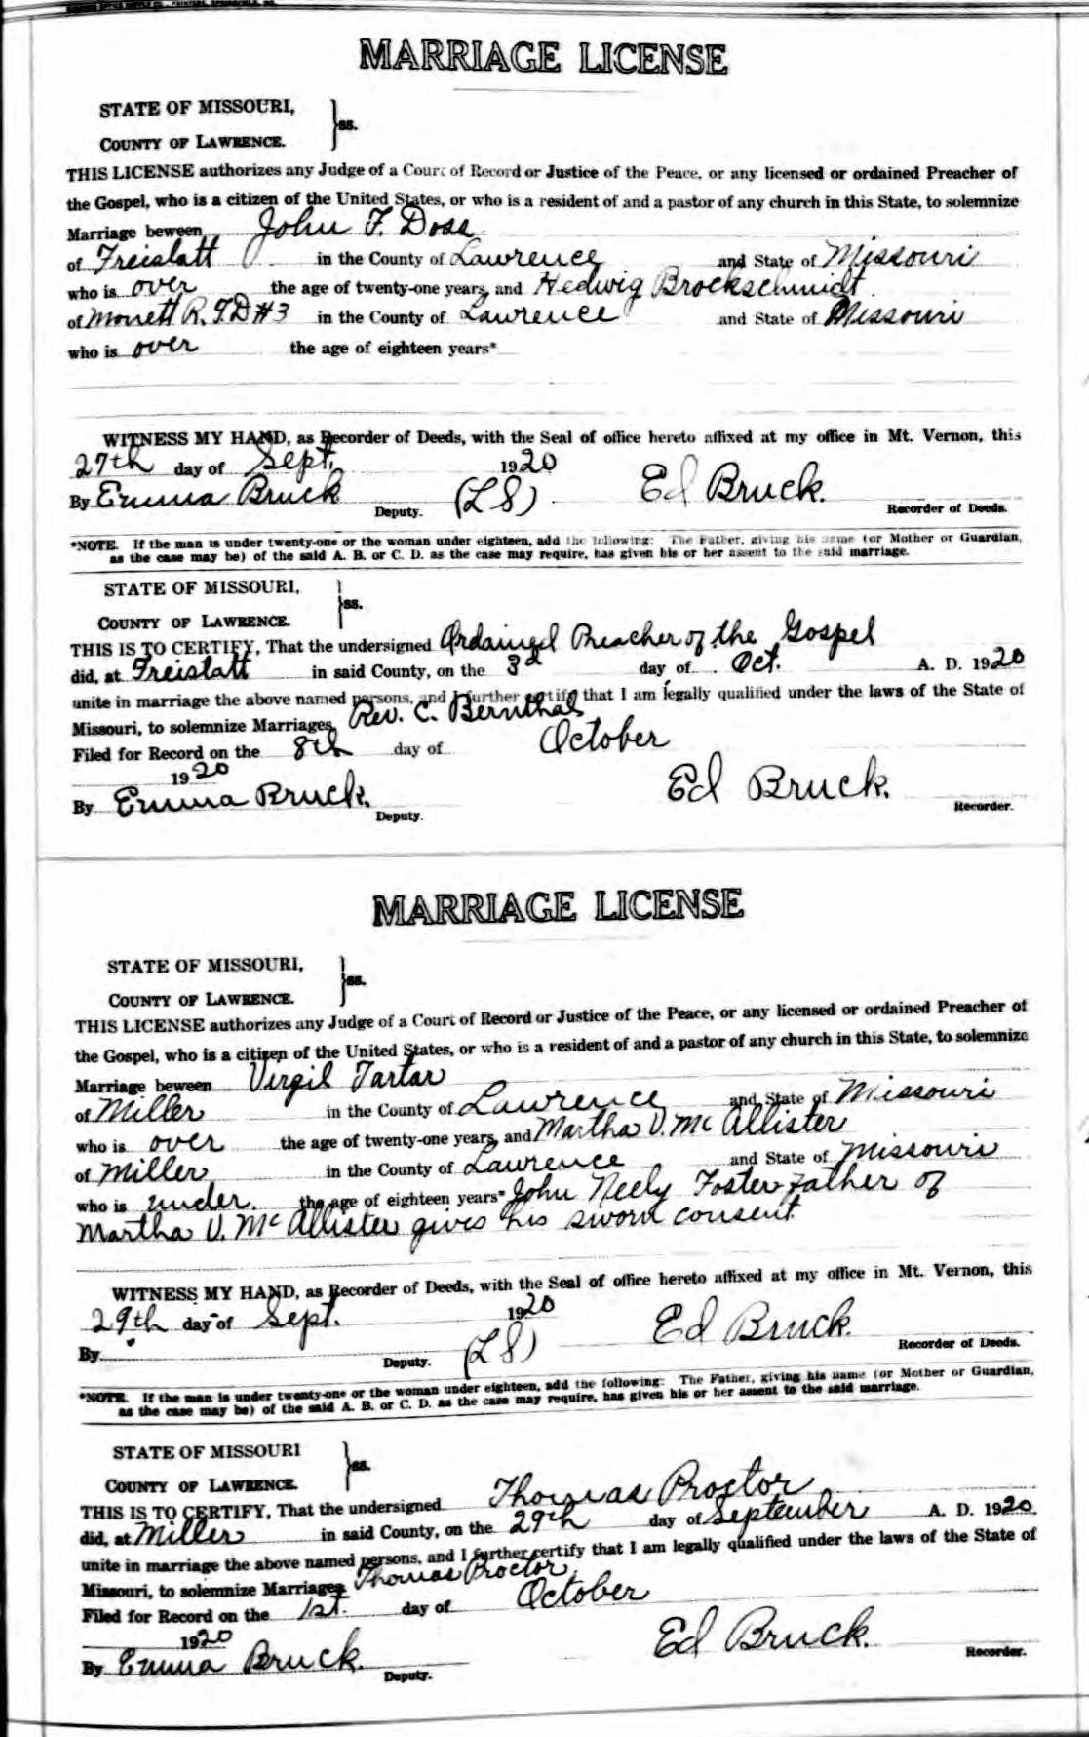 MARRIAGE LICENSE
STATE OF MISSOURI,
COUNTY OF LAWRENCE. } ss.
THIS LICENSE authorizes any Judge of a Court of Record or Justice of the Peace, or any licensed or ordained Preacher of
the Gospel, who is a citizen of the United States, or who is a resident of and a pastor of any church in this State, to solemnize
Marriage beween John F. Doss
of Freislatt in the County of Lawrence and State of Missouri
who is over the age of twenty-one years, and Hedwig Brockschmidt
of Monett R.F.D #3 in the County of Lawrence and State of Missouri
who is over the age of eighteen years*
WITNESS MY HAND, as Recorder of Deeds, with the Seal of office hereto affixed at my office in Mt. Vernon, this
27th day of Sept. 1920
By Emma Bruck Deputy. (LS) Ed Bruck. Recorder of Deeds.
*NOTE. If the man is under twenty-one or the woman under eighteen, add the following: The Father, giving his name (or Mother or Guardian,
as the case may be) of the said A. B. or C. D. as the case may require, has given his or her assent to the said marriage.
STATE OF MISSOURI,
COUNTY OF LAWRENCE. } ss.
THIS IS TO CERTIFY, That the undersigned Ordained Preacher of the Gospel
did, at Freislatt in said County, on the 3d day of Oct. A. D. 1920
unite in marriage the above named persons, and I further certify that I am legally qualified under the laws of the State of
Missouri, to solemnize Marriages. Rev. C. Bernthal
Filed for Record on the 8th day of October
1920
By Emma Bruck. Deputy. Ed Bruck. Recorder.
MARRIAGE LICENSE
STATE OF MISSOURI,
COUNTY OF LAWRENCE. } ss.
THIS LICENSE authorizes any Judge of a Court of Record or Justice of the Peace, or any licensed or ordained Preacher of
the Gospel, who is a citizen of the United States, or who is a resident of and a pastor of any church in this State, to solemnize
Marriage beween Virgil Tartar
of Miller in the County of Lawrence and State of Missouri
who is over the age of twenty-one years, and Martha V. McAllister
of Miller in the County of Lawrence and State of Missouri
who is under. the age of eighteen years* John Neely Foster father of
Martha V. McAllister gives his sworn consent.
WITNESS MY HAND, as Recorder of Deeds, with the Seal of office hereto affixed at my office in Mt. Vernon, this
29th day of Sept. 1920
By Deputy. (LS) Ed Bruck. Recorder of Deeds.
*NOTE. If the man is under twenty-one or the woman under eighteen, add the following: The Father, giving his name (or Mother or Guardian,
as the case may be) of the said A. B. or C. D. as the case may require, has given his or her assent to the said marriage.
STATE OF MISSOURI
COUNTY OF LAWRENCE. } ss.
THIS IS TO CERTIFY, That the undersigned Thomas Proctor
did, at Miller in said County, on the 29th day of September A. D. 1920.
unite in marriage the above named persons, and I further certify that I am legally qualified under the laws of the State of
Missouri, to solemnize Marriages. Thomas Proctor
Filed for Record on the 1st. day of October
1920
By Emma Bruck. Deputy. Ed Bruck. Recorder.